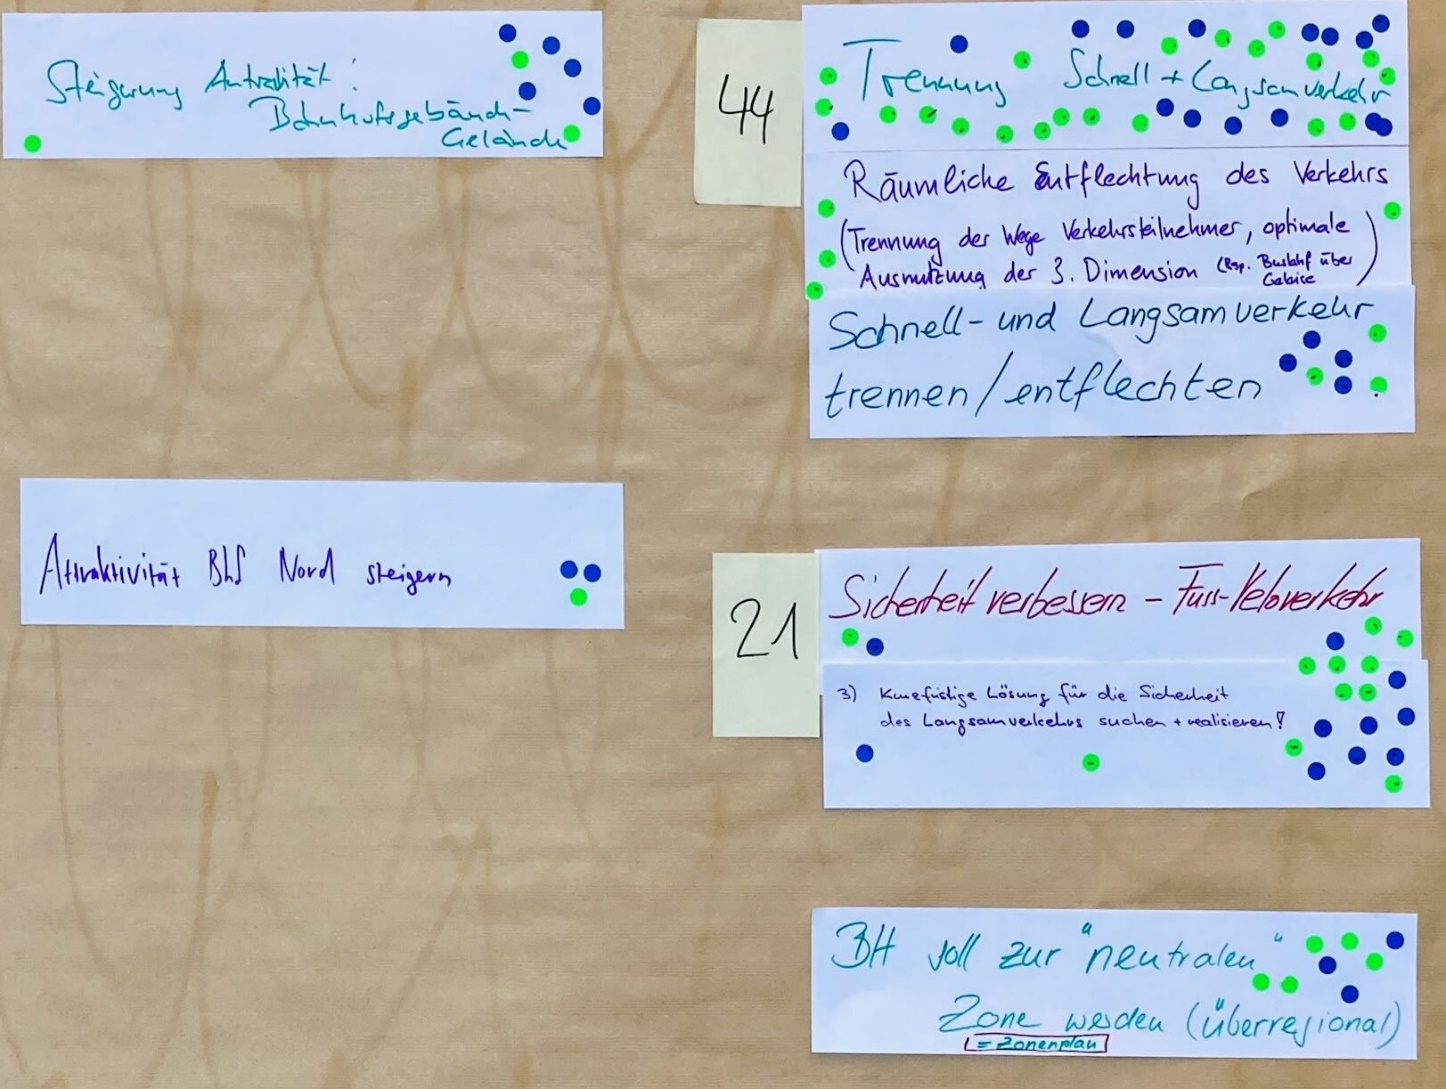 Steigerung Attraktivität:
Bahnhofsgebäude-
Gelände
44
Trennung Schnell + Langsamverkehr
Räumliche Entflechtung des Verkehrs
(Trennung der Wege Verkehrsteilnehmer, optimale
Ausnutzung der 3. Dimension (Bsp. Bushof über
Geleise)
Schnell- und Langsamverkehr
trennen/entflechten
Attraktivität Bhf Nord steigern
21
Sicherheit verbessern - Fuss-Veloverkehr
3) Kurzfristige Lösung für die Sicherheit
des Langsamverkehrs suchen + realisieren!
BH soll zur "neutralen"
Zone werden (überregional)
= Zonenplan